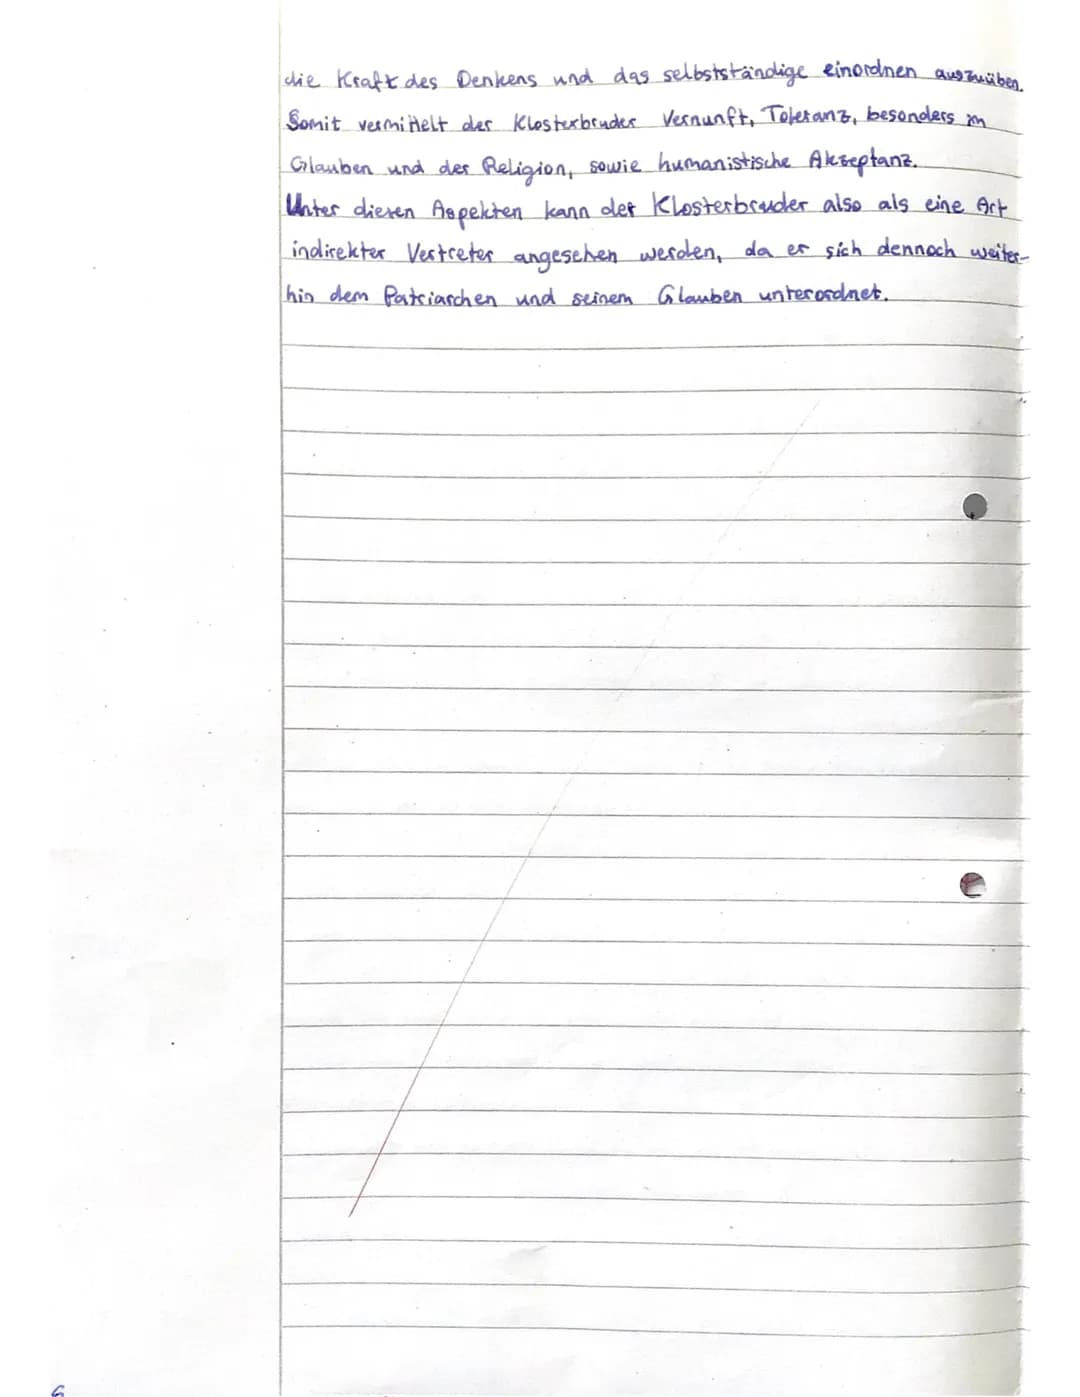 die Kraft des Denkens und das selbstständige einordnen auszuüben.
Somit vermittelt der Klosterbruder Vernunft, Toleranz, besonders im
Glauben und der Religion, sowie humanistische Akzeptanz.
Unter diesen Aspekten kann der Klosterbruder also als eine Art
indirekter Vertreter angesehen werden, da er sich dennoch weiter-
hin dem Patriarchen und seinem Glauben unterordnet.